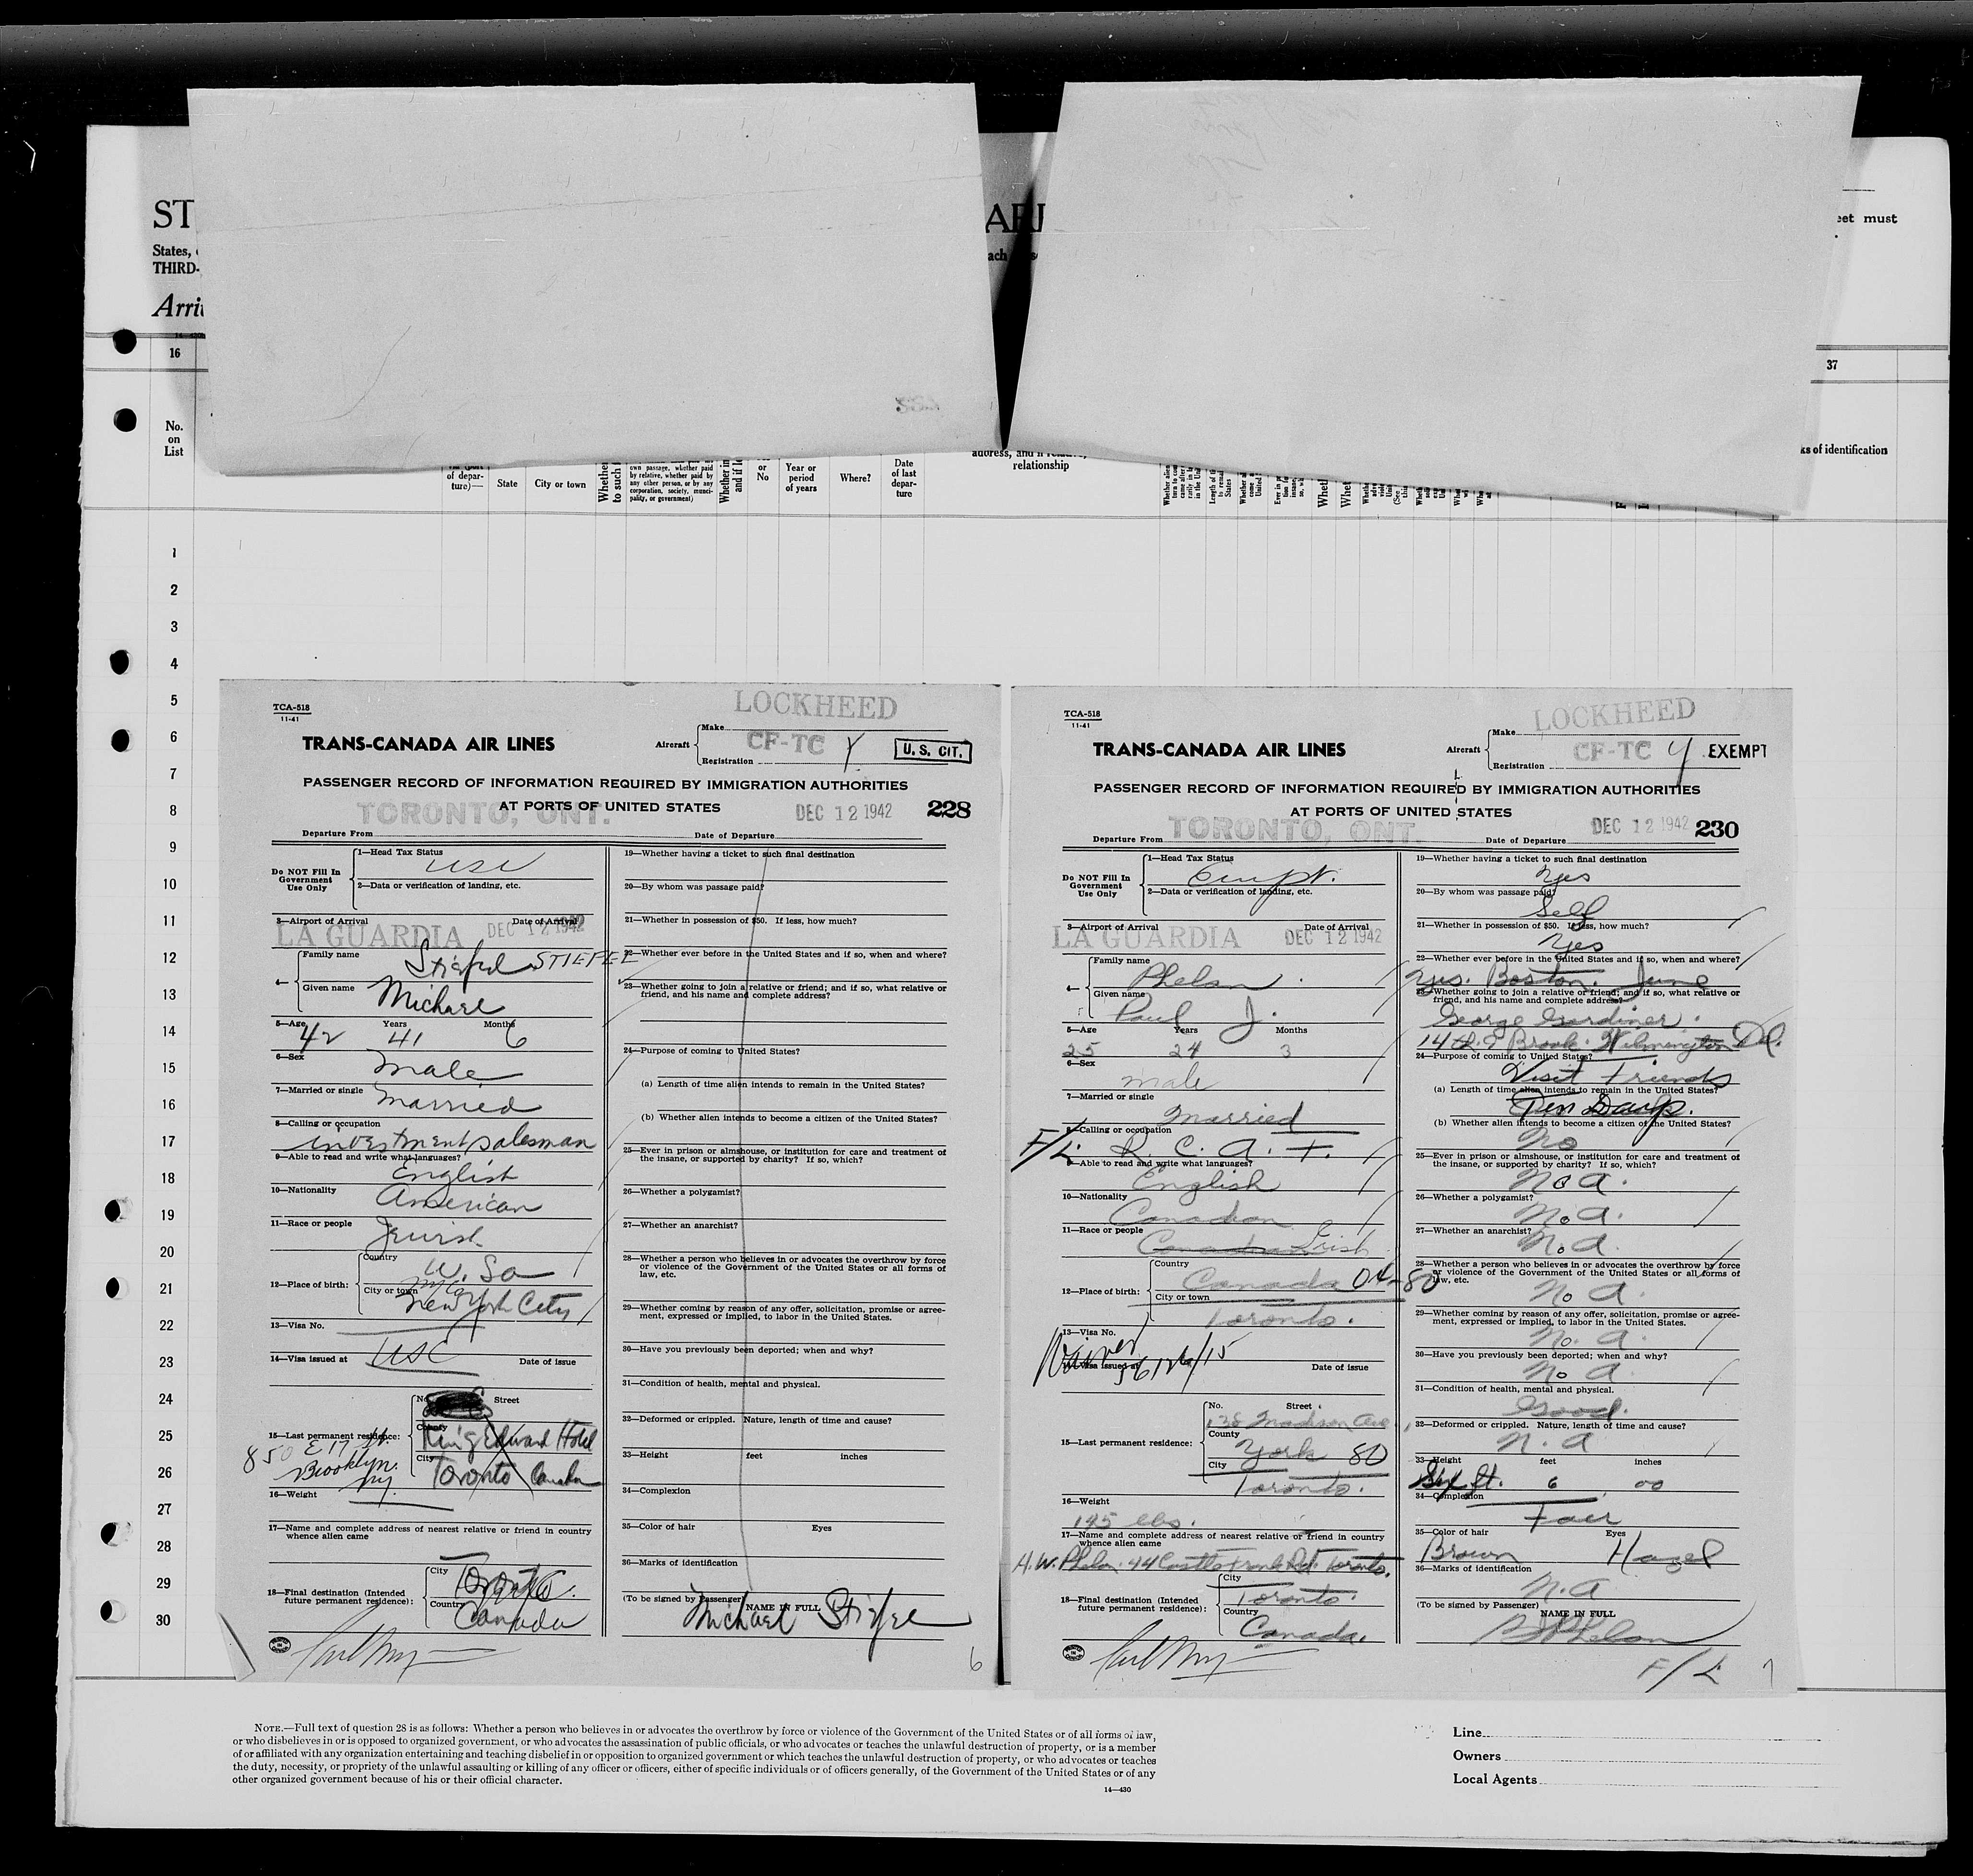 ST
ARI
eet must
States,
THIRD-
ach
Arri
16
37
No.
on
List
ks of identification
of depar-
ture)—
State
City or town
Whether
to such
own passage, whether paid
by relative, whether paid by
any other person, or by any
corporation, society, munici-
pality, or government)
Whether in
and if
or
No
Year or
period
of years
Where?
Date
of last
depar-
ture
address, and if relative,
relationship
1
2
3
4
5
6
7
8
9
10
11
12
13
14
15
16
17
18
19
20
21
22
23
24
25
26
27
28
29
30
TCA-518
11-41
LOCKHEED
TRANS-CANADA AIR LINES
Aircraft
Make
CF-TC Y
Registration
U. S. CIT.
PASSENGER RECORD OF INFORMATION REQUIRED BY IMMIGRATION AUTHORITIES
AT PORTS OF UNITED STATES
TORONTO, ONT.
DEC 12 1942
228
Departure From
Date of Departure
Do NOT Fill In
Government
Use Only
1—Head Tax Status
USC
2—Data or verification of landing, etc.
3—Airport of Arrival
Date of Arrival
LA GUARDIA DEC 12 1942
4—
Family name
Stiefel STIEFEL
Given name
Michael
5—Age Years Months
42 41 6
6—Sex
Male
7—Married or single
Married
8—Calling or occupation
investment salesman
9—Able to read and write what languages?
English
10—Nationality
American
11—Race or people
Jewish
12—Place of birth:
Country
U. S. a
City or town
NYC
New York City
13—Visa No.
14—Visa issued at
USC
Date of issue
15—Last permanent residence:
No. Street
County
King Edward Hotel
City
Toronto Canada
850 E 17 St.
Brooklyn.
NY.
16—Weight
17—Name and complete address of nearest relative or friend in country
whence alien came
18—Final destination (Intended
future permanent residence):
City
Toronto.
Country
Canada
19—Whether having a ticket to such final destination
20—By whom was passage paid?
21—Whether in possession of $50. If less, how much?
22—Whether ever before in the United States and if so, when and where?
23—Whether going to join a relative or friend; and if so, what relative or
friend, and his name and complete address?
24—Purpose of coming to United States?
(a) Length of time alien intends to remain in the United States?
(b) Whether alien intends to become a citizen of the United States?
25—Ever in prison or almshouse, or institution for care and treatment of
the insane, or supported by charity? If so, which?
26—Whether a polygamist?
27—Whether an anarchist?
28—Whether a person who believes in or advocates the overthrow by force
or violence of the Government of the United States or all forms of
law, etc.
29—Whether coming by reason of any offer, solicitation, promise or agree-
ment, expressed or implied, to labor in the United States.
30—Have you previously been deported; when and why?
31—Condition of health, mental and physical.
32—Deformed or crippled. Nature, length of time and cause?
33—Height feet inches
34—Complexion
35—Color of hair Eyes
36—Marks of identification
(To be signed by Passenger)
NAME IN FULL
Michael Stiefel
6
TCA-518
11-41
LOCKHEED
TRANS-CANADA AIR LINES
Aircraft
Make
CF-TC Y
Registration
EXEMPT
PASSENGER RECORD OF INFORMATION REQUIRED BY IMMIGRATION AUTHORITIES
AT PORTS OF UNITED STATES
TORONTO, ONT.
DEC 12 1942
230
Departure From
Date of Departure
Do NOT Fill In
Government
Use Only
1—Head Tax Status
Exmpt.
2—Data or verification of landing, etc.
3—Airport of Arrival
Date of Arrival
LA GUARDIA DEC 12 1942
4—
Family name
Phelan
Given name
Paul J.
5—Age Years Months
25 24 3
6—Sex
male
7—Married or single
Married
8—Calling or occupation
F/L. R. C. A. F.
9—Able to read and write what languages?
English
10—Nationality
Canadian
11—Race or people
Canadian Irish
12—Place of birth:
Country
Canada 04-80
City or town
Toronto.
13—Visa No.
Waiver
14—Visa issued at
Date of issue
15—Last permanent residence:
No. Street
138 Madison Ave.
County
York 80
City
Toronto.
16—Weight
195 lbs.
17—Name and complete address of nearest relative or friend in country
whence alien came
A.W. Phelan. 44 Castle Frank Rd. Toronto.
18—Final destination (Intended
future permanent residence):
City
Toronto.
Country
Canada.
19—Whether having a ticket to such final destination
Yes
20—By whom was passage paid?
Self
21—Whether in possession of $50. If less, how much?
Yes
22—Whether ever before in the United States and if so, when and where?
Yes. Boston. June
23—Whether going to join a relative or friend; and if so, what relative or
friend, and his name and complete address?
George Gardiner.
Brook. Wilmington Del.
24—Purpose of coming to United States?
Visit Friends
(a) Length of time alien intends to remain in the United States?
Ten Days.
(b) Whether alien intends to become a citizen of the United States?
No
25—Ever in prison or almshouse, or institution for care and treatment of
the insane, or supported by charity? If so, which?
No a.
26—Whether a polygamist?
No a.
27—Whether an anarchist?
No a.
28—Whether a person who believes in or advocates the overthrow by force
or violence of the Government of the United States or all forms of
law, etc.
No a.
29—Whether coming by reason of any offer, solicitation, promise or agree-
ment, expressed or implied, to labor in the United States.
No. a.
30—Have you previously been deported; when and why?
No a
31—Condition of health, mental and physical.
Good.
32—Deformed or crippled. Nature, length of time and cause?
N. a
33—Height feet inches
Six ft. 6 00
34—Complexion
Fair
35—Color of hair Eyes
Brown Hazel
36—Marks of identification
N.a
(To be signed by Passenger)
NAME IN FULL
Phelan
F/L
7
NOTE.—Full text of question 28 is as follows: Whether a person who believes in or advocates the overthrow by force or violence of the Government of the United States or of all forms of law,
or who disbelieves in or is opposed to organized government, or who advocates the assassination of public officials, or who advocates or teaches the unlawful destruction of property, or is a member
of or affiliated with any organization entertaining and teaching disbelief in or opposition to organized government or which teaches the unlawful destruction of property, or who advocates or teaches
the duty, necessity, or propriety of the unlawful assaulting or killing of any officer or officers, either of specific individuals or of officers generally, of the Government of the United States or of any
other organized government because of his or their official character.
14—430
Line
Owners
Local Agents